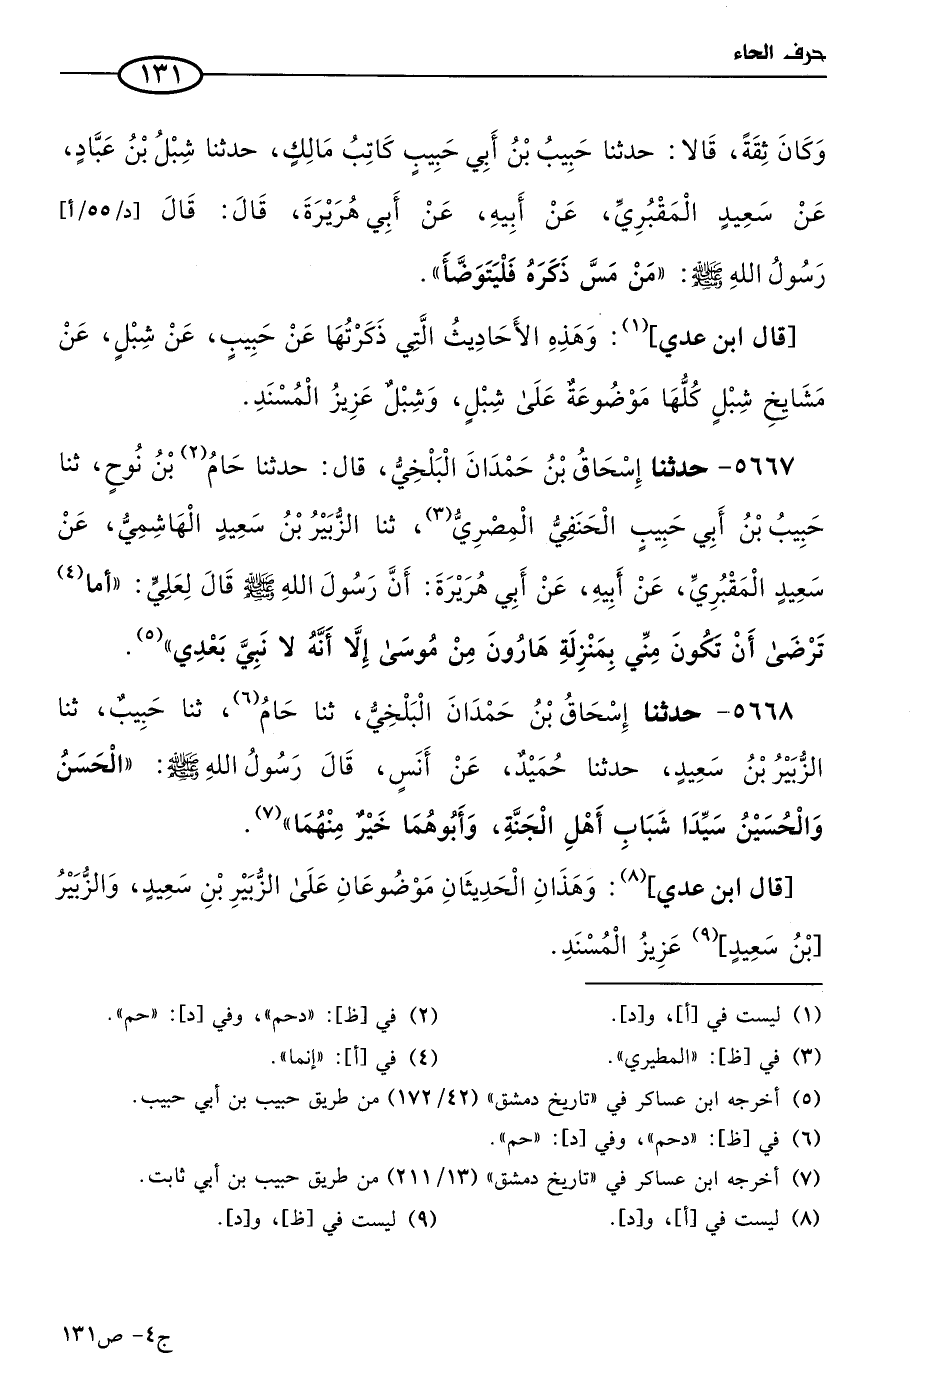 حرف الحاء
١٣١
وَكَانَ ثِقَةً، قَالا: حدثنا حَبِيبُ بْنُ أَبِي حَبِيبٍ كَاتِبُ مَالِكٍ، حدثنا شِبْلُ بْنُ عَبَّادٍ،
عَنْ سَعِيدٍ الْمَقْبُرِيِّ، عَنْ أَبِيهِ، عَنْ أَبِي هُرَيْرَةَ، قَالَ: قَالَ [د/٥٥/أ]
رَسُولُ اللهِ ﷺ: «مَنْ مَسَّ ذَكَرَهُ فَلْيَتَوَضَّأْ».
[قال ابن عدي](١): وَهَذِهِ الأَحَادِيثُ الَّتِي ذَكَرْتُهَا عَنْ حَبِيبٍ، عَنْ شِبْلٍ، عَنْ
مَشَايِخِ شِبْلٍ كُلُّهَا مَوْضُوعَةٌ عَلَىٰ شِبْلٍ، وَشِبْلٌ عَزِيزُ الْمُسْنَدِ.
٥٦٦٧- حدثنا إِسْحَاقُ بْنُ حَمْدَانَ الْبَلْخِيُّ، قال: حدثنا حَامُ(٢) بْنُ نُوحٍ، ثنا
حَبِيبُ بْنُ أَبِي حَبِيبٍ الْحَنَفِيُّ الْمِصْرِيُّ(٣)، ثنا الزُّبَيْرُ بْنُ سَعِيدٍ الْهَاشِمِيُّ، عَنْ
سَعِيدٍ الْمَقْبُرِيِّ، عَنْ أَبِيهِ، عَنْ أَبِي هُرَيْرَةَ: أَنَّ رَسُولَ اللهِ ﷺ قَالَ لِعَلِيٍّ: «أما(٤)
تَرْضَىٰ أَنْ تَكُونَ مِنِّي بِمَنْزِلَةِ هَارُونَ مِنْ مُوسَىٰ إِلَّا أَنَّهُ لا نَبِيَّ بَعْدِي»(٥).
٥٦٦٨- حدثنا إِسْحَاقُ بْنُ حَمْدَانَ الْبَلْخِيُّ، ثنا حَامُ(٦)، ثنا حَبِيبٌ، ثنا
الزُّبَيْرُ بْنُ سَعِيدٍ، حدثنا حُمَيْدٌ، عَنْ أَنَسٍ، قَالَ رَسُولُ اللهِ ﷺ: «الْحَسَنُ
وَالْحُسَيْنُ سَيِّدَا شَبَابِ أَهْلِ الْجَنَّةِ، وَأَبُوهُمَا خَيْرٌ مِنْهُمَا»(٧).
[قال ابن عدي](٨): وَهَذَانِ الْحَدِيثَانِ مَوْضُوعَانِ عَلَىٰ الزُّبَيْرِ بْنِ سَعِيدٍ، وَالزُّبَيْرُ
[بْنُ سَعِيدٍ](٩) عَزِيزُ الْمُسْنَدِ.
(١) ليست في [أ]، و[د]. (٢) في [ظ]: «دحم»، وفي [د]: «حم».
(٣) في [ظ]: «المطيري». (٤) في [أ]: «إنما».
(٥) أخرجه ابن عساكر في «تاريخ دمشق» (١٧٢/٤٢) من طريق حبيب بن أبي حبيب.
(٦) في [ظ]: «دحم»، وفي [د]: «حم».
(٧) أخرجه ابن عساكر في «تاريخ دمشق» (٢١١/١٣) من طريق حبيب بن أبي ثابت.
(٨) ليست في [أ]، و[د]. (٩) ليست في [ظ]، و[د].
ج٤- ص١٣١